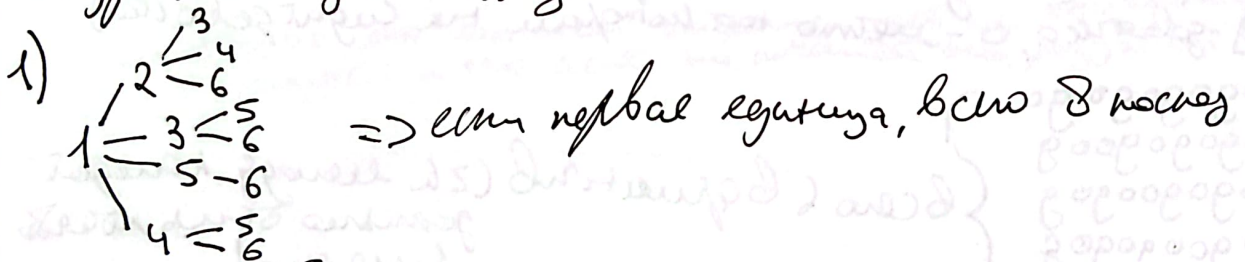 1)
3
2 4
6
1 3 5
6
5 - 6
4 5
6
=> если первая единица, всего 8 послед